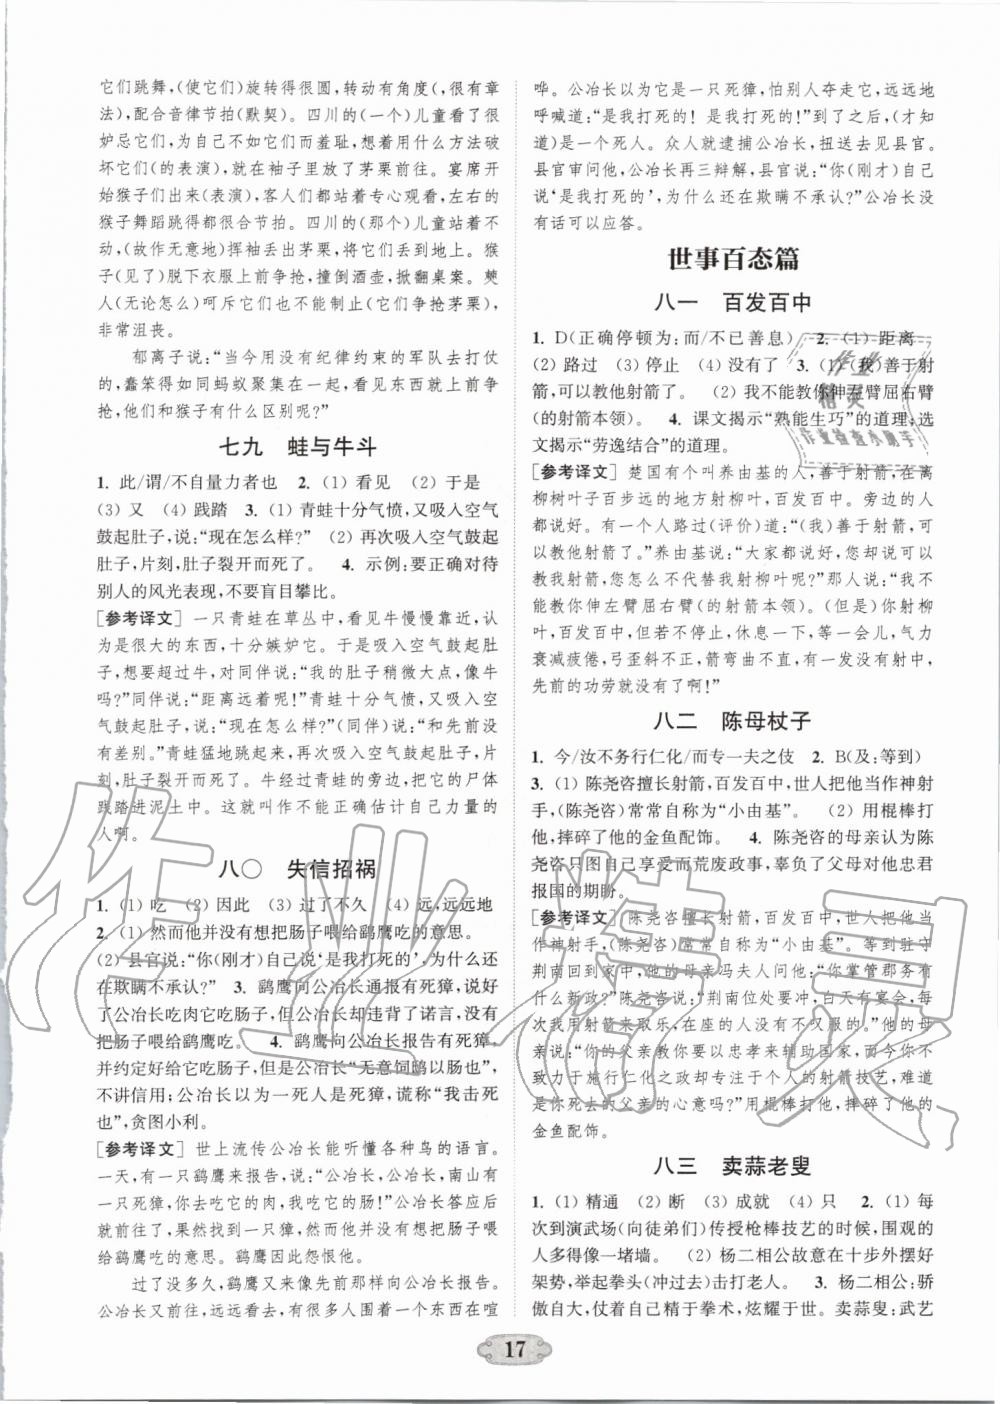 它们跳舞,(使它们)旋转得很圆,转动有角度(,很有章
法),配合音律节拍(默契)。四川的(一个)儿童看了很
妒忌它们,为自己不如它们而羞耻,想用什么方法破
坏它们(的表演),就在袖子里放了茅栗前往。宴席开
始猴子们出来(表演),客人们都站着专心观看,左右的
猴子舞蹈跳得都很合节拍。四川的(那个)儿童站着不
动,(故作无意地)挥袖丢出茅栗,将它们丢到地上。猴
子(见了)脱下衣服上前争抢,撞倒酒壶,掀翻桌案。僰
人(无论怎么)呵斥它们也不能制止(它们争抢茅栗),
非常沮丧。
郁离子说:“当今用没有纪律约束的军队去打仗
的,蠢笨得如同蚂蚁聚集在一起,看见东西就上前争
抢,他们和猴子有什么区别呢?”
七九 蛙与牛斗
1. 此/谓/不自量力者也 2. (1) 看见 (2) 于是
(3) 又 (4) 践踏 3. (1) 青蛙十分气愤,又吸入空气
鼓起肚子,说:“现在怎么样?” (2) 再次吸入空气鼓起
肚子,片刻,肚子裂开而死了。 4. 示例:要正确对待
别人的风光表现,不要盲目攀比。
[参考译文] 一只青蛙在草丛中,看见牛慢慢靠近,认
为是很大的东西,十分嫉妒它。于是吸入空气鼓起肚
子,想要超过牛,对同伴说:“我的肚子稍微大点,像牛
吗?”同伴说:“距离远着呢!”青蛙十分气愤,又吸入空
气鼓起肚子,说:“现在怎么样?”(同伴)说:“和先前没
有差别。”青蛙猛地跳起来,再次吸入空气鼓起肚子,片
刻,肚子裂开而死了。牛经过青蛙的旁边,把它的尸体
践踏进泥土中。这就叫作不能正确估计自己力量的
人啊。
八〇 失信招祸
1. (1) 吃 (2) 因此 (3) 过了不久 (4) 远,远远地
2. (1) 然而他并没有想把肠子喂给鹞鹰吃的意思。
(2) 县官说:“你(刚才)自己说‘是我打死的’,为什么还
在欺瞒不承认?” 3. 鹞鹰向公冶长通报有死獐,说好
了公冶长吃肉它吃肠子,但公冶长却违背了诺言,没有
把肠子喂给鹞鹰吃。 4. 鹞鹰向公冶长报告有死獐,
并约定好给它吃肠子,但是公冶长“无意饲鹞以肠也”,
不讲信用;公冶长以为一死人是死獐,谎称“我击死
也”,贪图小利。
[参考译文] 世上流传公冶长能听懂各种鸟的语言。
一天,有一只鹞鹰来报告,说:“公冶长,公冶长,南山有
一只死獐,你去吃它的肉,我吃它的肠!”公冶长答应后
就前往,果然找到一只獐,然而他并没有想把肠子喂
给鹞鹰吃的意思。鹞鹰因此怨恨他。
过了没多久,鹞鹰又来像先前那样向公冶长报告。
公冶长又前往,远远看见有很多人围着一个东西在喧
哗。公冶长以为是一只死獐,怕别人夺走它,远远地
呼喊道:“是我打死的! 是我打死的!”到了,(才知
道)是一个死人。众人就逮捕公冶长,扭送去见县官。
县官审问他,公冶长再三辩解,县官说:“你(刚才)自己
说‘是我打死的’,为什么还在欺瞒不承认?”公冶长没
有话可以应答。
世事百态篇
八一 百发百中
1. D(正确停顿为:而/不已善息) 2. (1) 距离
(2) 路过 (3) 停止 (4) 没有了 3. (1) (我)善于射
箭,可以教他射箭了。 (2) 我不能教你伸左臂屈右臂
(的射箭本领)。 4. 课文揭示“熟能生巧”的道理,选
文揭示“劳逸结合”的道理。
[参考译文] 楚国有个叫养由基的人,善于射箭,在离
柳树叶子百步远的地方射柳叶,百发百中。旁边的人
都说好。有一个人路过(评价)道:“(我)善于射箭,可
以教他射箭了。”养由基说:“大家都说好,你却说可以
教我射箭,您怎么不代替我射柳叶呢?”那人说:“我不
能教你伸左臂屈右臂(的射箭本领)。(但是)你射柳
叶,百发百中,但若不停止,休息一下,等一会儿,气力
衰减疲倦,弓歪斜不正,箭弯曲不直,有一发没有射中,
先前的功劳就没有了啊!”
八二 陈母杖子
1. 今/汝不务行仁化/而专一夫之伎 2. B(及:等到)
3. (1) 陈尧咨擅长射箭,百发百中,世人把他当作神射
手,(陈尧咨)常常自称为“小由基”。 (2) 用棍棒打
他,摔碎了他的金鱼配饰。 4. 陈尧咨的母亲认为陈
尧咨只图自己享受爱而荒废政事,辜负了父母对他忠君
报国的期盼。
[参考译文] 陈尧咨擅长射箭,百发百中,世人把他当
作神射手,(陈尧咨)常常自称为“小由基”。等到驻守
荆南回到家中,他的母亲冯夫人问他:“你掌管郡务有
什么新政?”陈尧咨说:“荆南位处要冲,白天有宴会,每
次我用射箭来取乐,在座的人没有不叹服的。”他的母
亲说:“你的父亲教你要以忠孝来辅助国家,而今你不
致力于施行仁化之政却专注于个人的射箭技艺,难道
是你死去的父亲的心意吗?”用棍棒打他,摔碎了他的
金鱼配饰。
八三 卖蒜老叟
1. (1) 精通 (2) 断 (3) 成就 (4) 只 2. (1) 每
次到演武场(向徒弟们)传授枪棒技艺的时候,围观的
人多得像一堵墙。 (2) 杨二相公故意在十步外摆好
架势,举起拳头(冲过去)击打老人。 3. 杨二相公:骄
傲自大,仗着自己精于拳术,炫耀于世。卖蒜叟:武艺
17
作业精灵
作业检查小助手